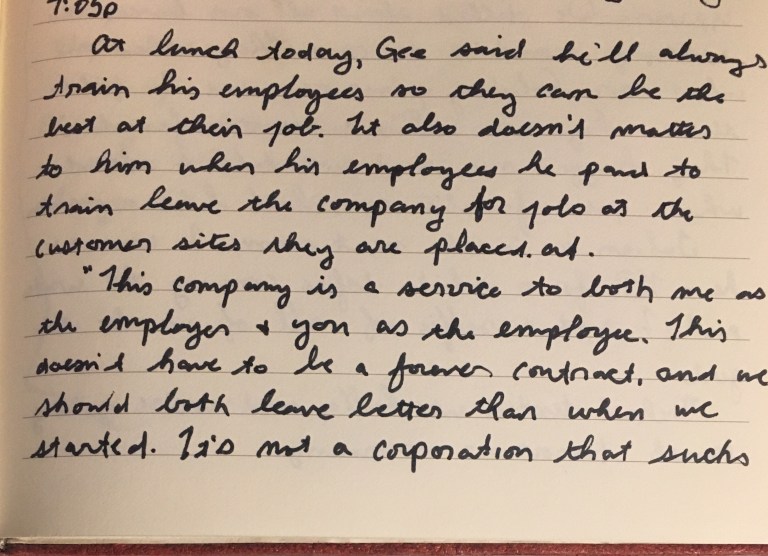 7:05p
At lunch today, Gee said he'll always
train his employees so they can be the
best at their job. It also doesn't matter
to him when his employees he paid to
train leave the company for jobs at the
customer sites they are placed at.
"This company is a service to both me as
the employer & you as the employee. This
doesn't have to be a forever contract, and we
should both leave better than when we
started. It's not a corporation that sucks